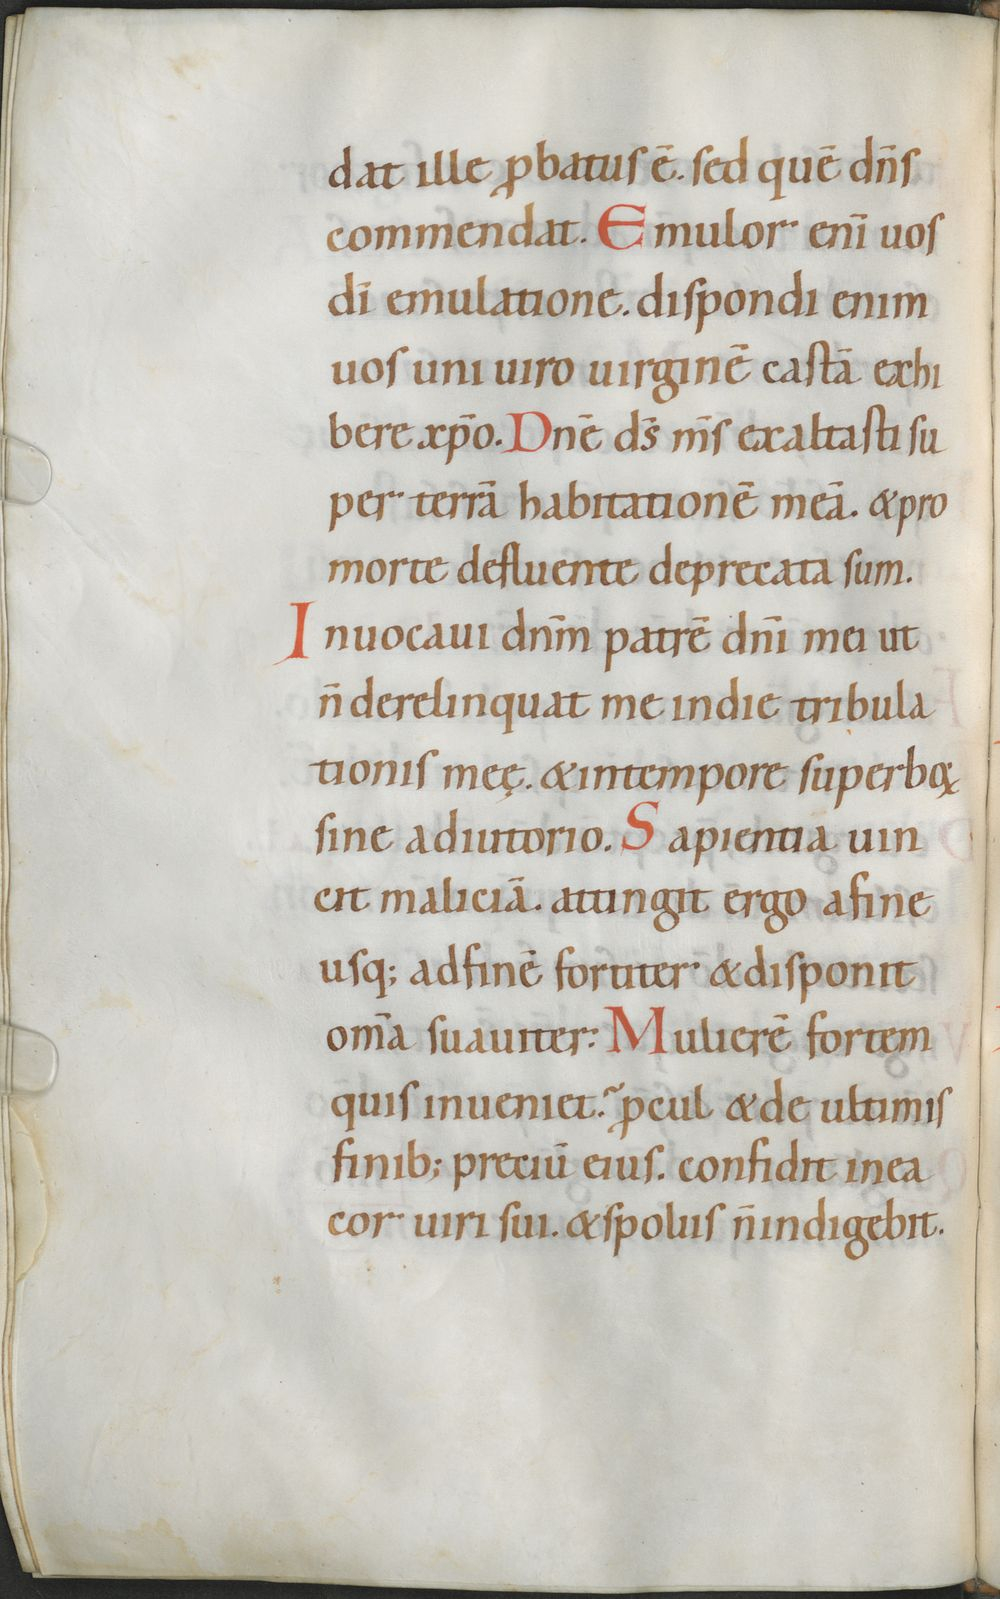 dat ille ꝓbatus ē. sed quē dn̄s
commendat. Emulor enī uos
dī emulatione. dispondi enim
uos uni uiro uirginē castā exhi
bere xp̄o. Dnē ds̄ m̄s exaltasti su
per terrā habitationē meā. & pro
morte defluente deprecata sum.
Inuocaui dnm̄ patrē dnī mei ut
n̄ derelinquat me indie tribula
tionis meę. & intempore superboꝝ
sine adiutorio. Sapientia uin
cit maliciā. attingit ergo afine
usq; adfinē fortiter & disponit
om̄a suauiter: Mulierē fortem
quis inueniet? ꝓcul & de ultimis
finib; preciū eius. confidit inea
cor uiri sui. & spoliis n̄ indigebit.